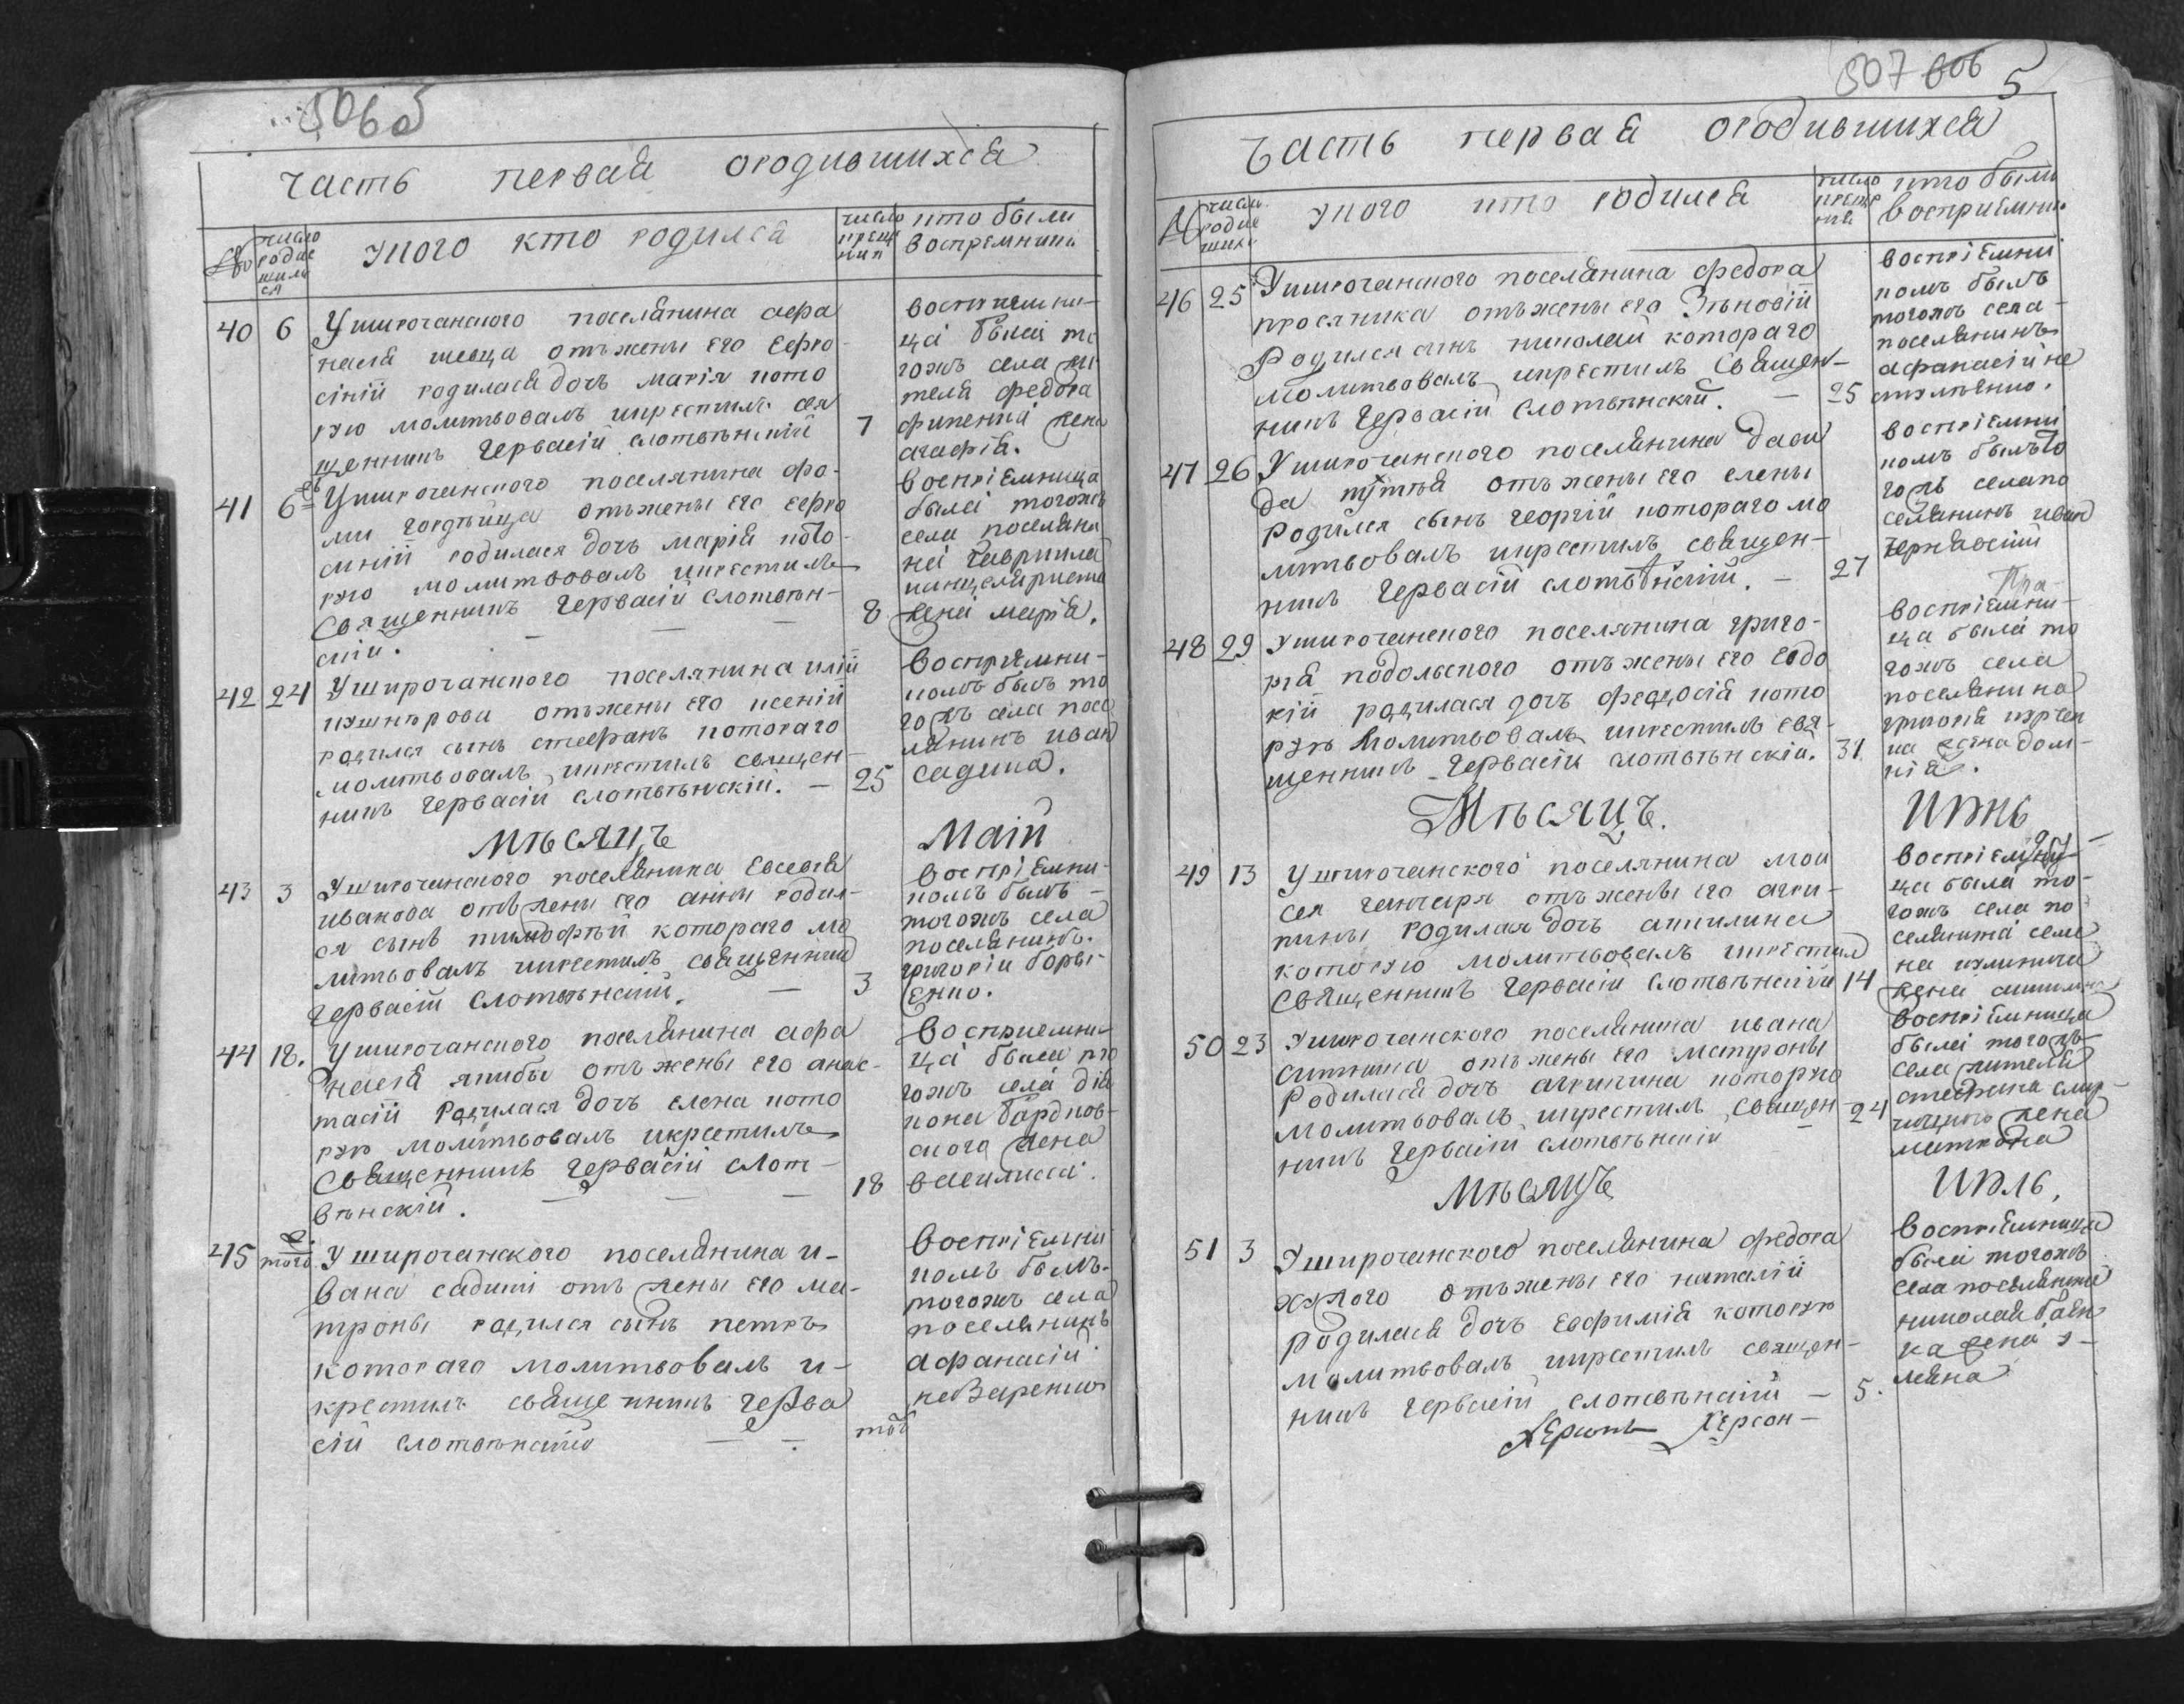 506 об
часть первая ородившихся
№
число родив шился
У кого кто родился
число креще ния
кто были восприемники
40 6 Уширочанского поселянина афа
насія шевца отъ жены его Евфро
сініи родилася дочь Марія кото
рую молитвовалъ икрестилъ свя
щенникъ Гервасій слотвѣнскій 7
восприемни-
ца была то
гожъ села жи
теля федора
жена
агафія.
41 6 Уширочанского поселянина фо-
ми отъ жены его евфро
синіи родилася дочь марія кото-
рую молитвовалъ икрестилъ
Священникъ Гервасій слотвѣн-
скій. 8
воспріемница
была тогожъ
села поселяни
на гавриила
канцеляриста
жена марія.
42 24 Уширочанского поселянина иліи
отъ жены его ксеніи
родился сынъ стефанъ котораго
молитвовалъ икрестилъ священ-
никъ Гервасій слотвѣнскій. — 25
восприемни-
комъ былъ то
гожъ села посе
лянинъ иван
садига.
мѣсяцъ Маій
43 3 Уширочанского поселянина Евсевія
ивакова отъ жены его анни родил-
ся сынъ тимофѣй котораго мо
литвовалъ икрестилъ священникъ
Гервасій Слотвѣнскій. — 3
воспріемни-
комъ былъ —
тогожъ села
поселянинъ.
григорій боры-
Енко.
44 18. Уширочанского поселянина афа
насія якибы отъ жены его анас-
тасіи Родилася дочь елена кото
рую молитвовалъ икрестилъ
Священникъ Гервасій слот-
вѣнскій. 18
восприемни-
ца была то
гожъ села дія
кона
ского жена
василисса.
45 того. Уширочанского поселянина и-
вана садиги отъ жены его ма-
троны родился сынъ петръ
котораго молитвовалъ и-
крестилъ священникъ Герва
сій слотвѣнскій — тог
воспріемни
комъ былъ.
тогожъ села
поселянинъ
афанасій
неваренко
507 606 5
часть первая ородившихся
№
число родив шихся
У кого кто родился
число креще нія
кто были восприемник.
46 25 Уширочанского поселянина федора
просяника отъ жены его Зѣновіи
Родился сынъ николай котораго
молитвовалъ икрестилъ Священ-
никъ Гервасій Слотвѣнскій. — 25
воспріемни
комъ былъ
тогожъ села —
поселянинъ
афанасій не
47 26 Уширочанского поселянина дави
да путря отъ жены его елены
Родился сынъ георгій котораго мо
литвовалъ икрестилъ священ-
никъ Гервасій слотвѣнскій. — 27
воспріемни
комъ былъ то
гожъ села по
селянинъ иван
чернявскій
48 29 Уширочанского поселянина григо-
рія подольского отъ жены его Евдо
кіи родилася дочь феодосія кото
рую молитвовалъ икрестилъ свя-
щенникъ Гервасій слотвѣнскій. 31
воспріемни-
ца была то
гожъ села
поселянина
григорія курчен
ка жена дом-
нія.
Мѣсяцъ. Июнь
49 13 Уширочанского поселянина мои
сея ганчаря отъ жены его агри-
пины родилася дочь акилина
которую молитвовалъ икрестил
Священникъ Гервасій Слотвѣнскій 14
воспріемни-
ца была то-
гожъ села по
селянина семе
на
жена акилина
50 23 Уширочанского поселянина ивана
ситника отъ жены его матроны
Родилася дочь агрипина которую
молитвовалъ икрестилъ священ-
никъ Гервасій слотвѣнскій — 24
воспріемница
была тогожъ
села жителя
стефана
жена
матрона
мѣсяцъ Июль,
51 3 Уширочанского поселянина федора
хутого отъ жены его наталіи
родилася дочь Евфимія которую
молитвовалъ икрестилъ священ-
никъ гервасій слотвѣнскій — 5.
воспріемница
была тогожъ
села поселянина
николая баби
ка жена у-
ляна
Херсон —